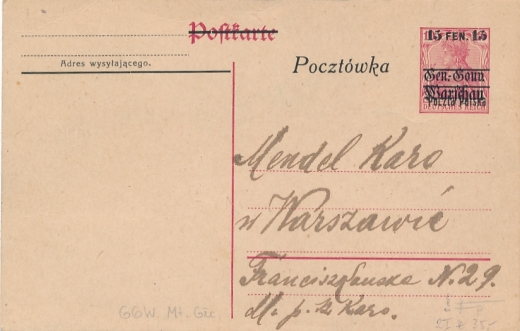 Postkarte
15 FEN. 15
Adres wysyłającego.
Pocztówka
Gen.-Gouv.
Warschau
Poczta Polska
DEUTSCHES REICH
Mendel Karo
w Warszawie
Franciszkańska N. 29.
M. p. Karo.
GGW